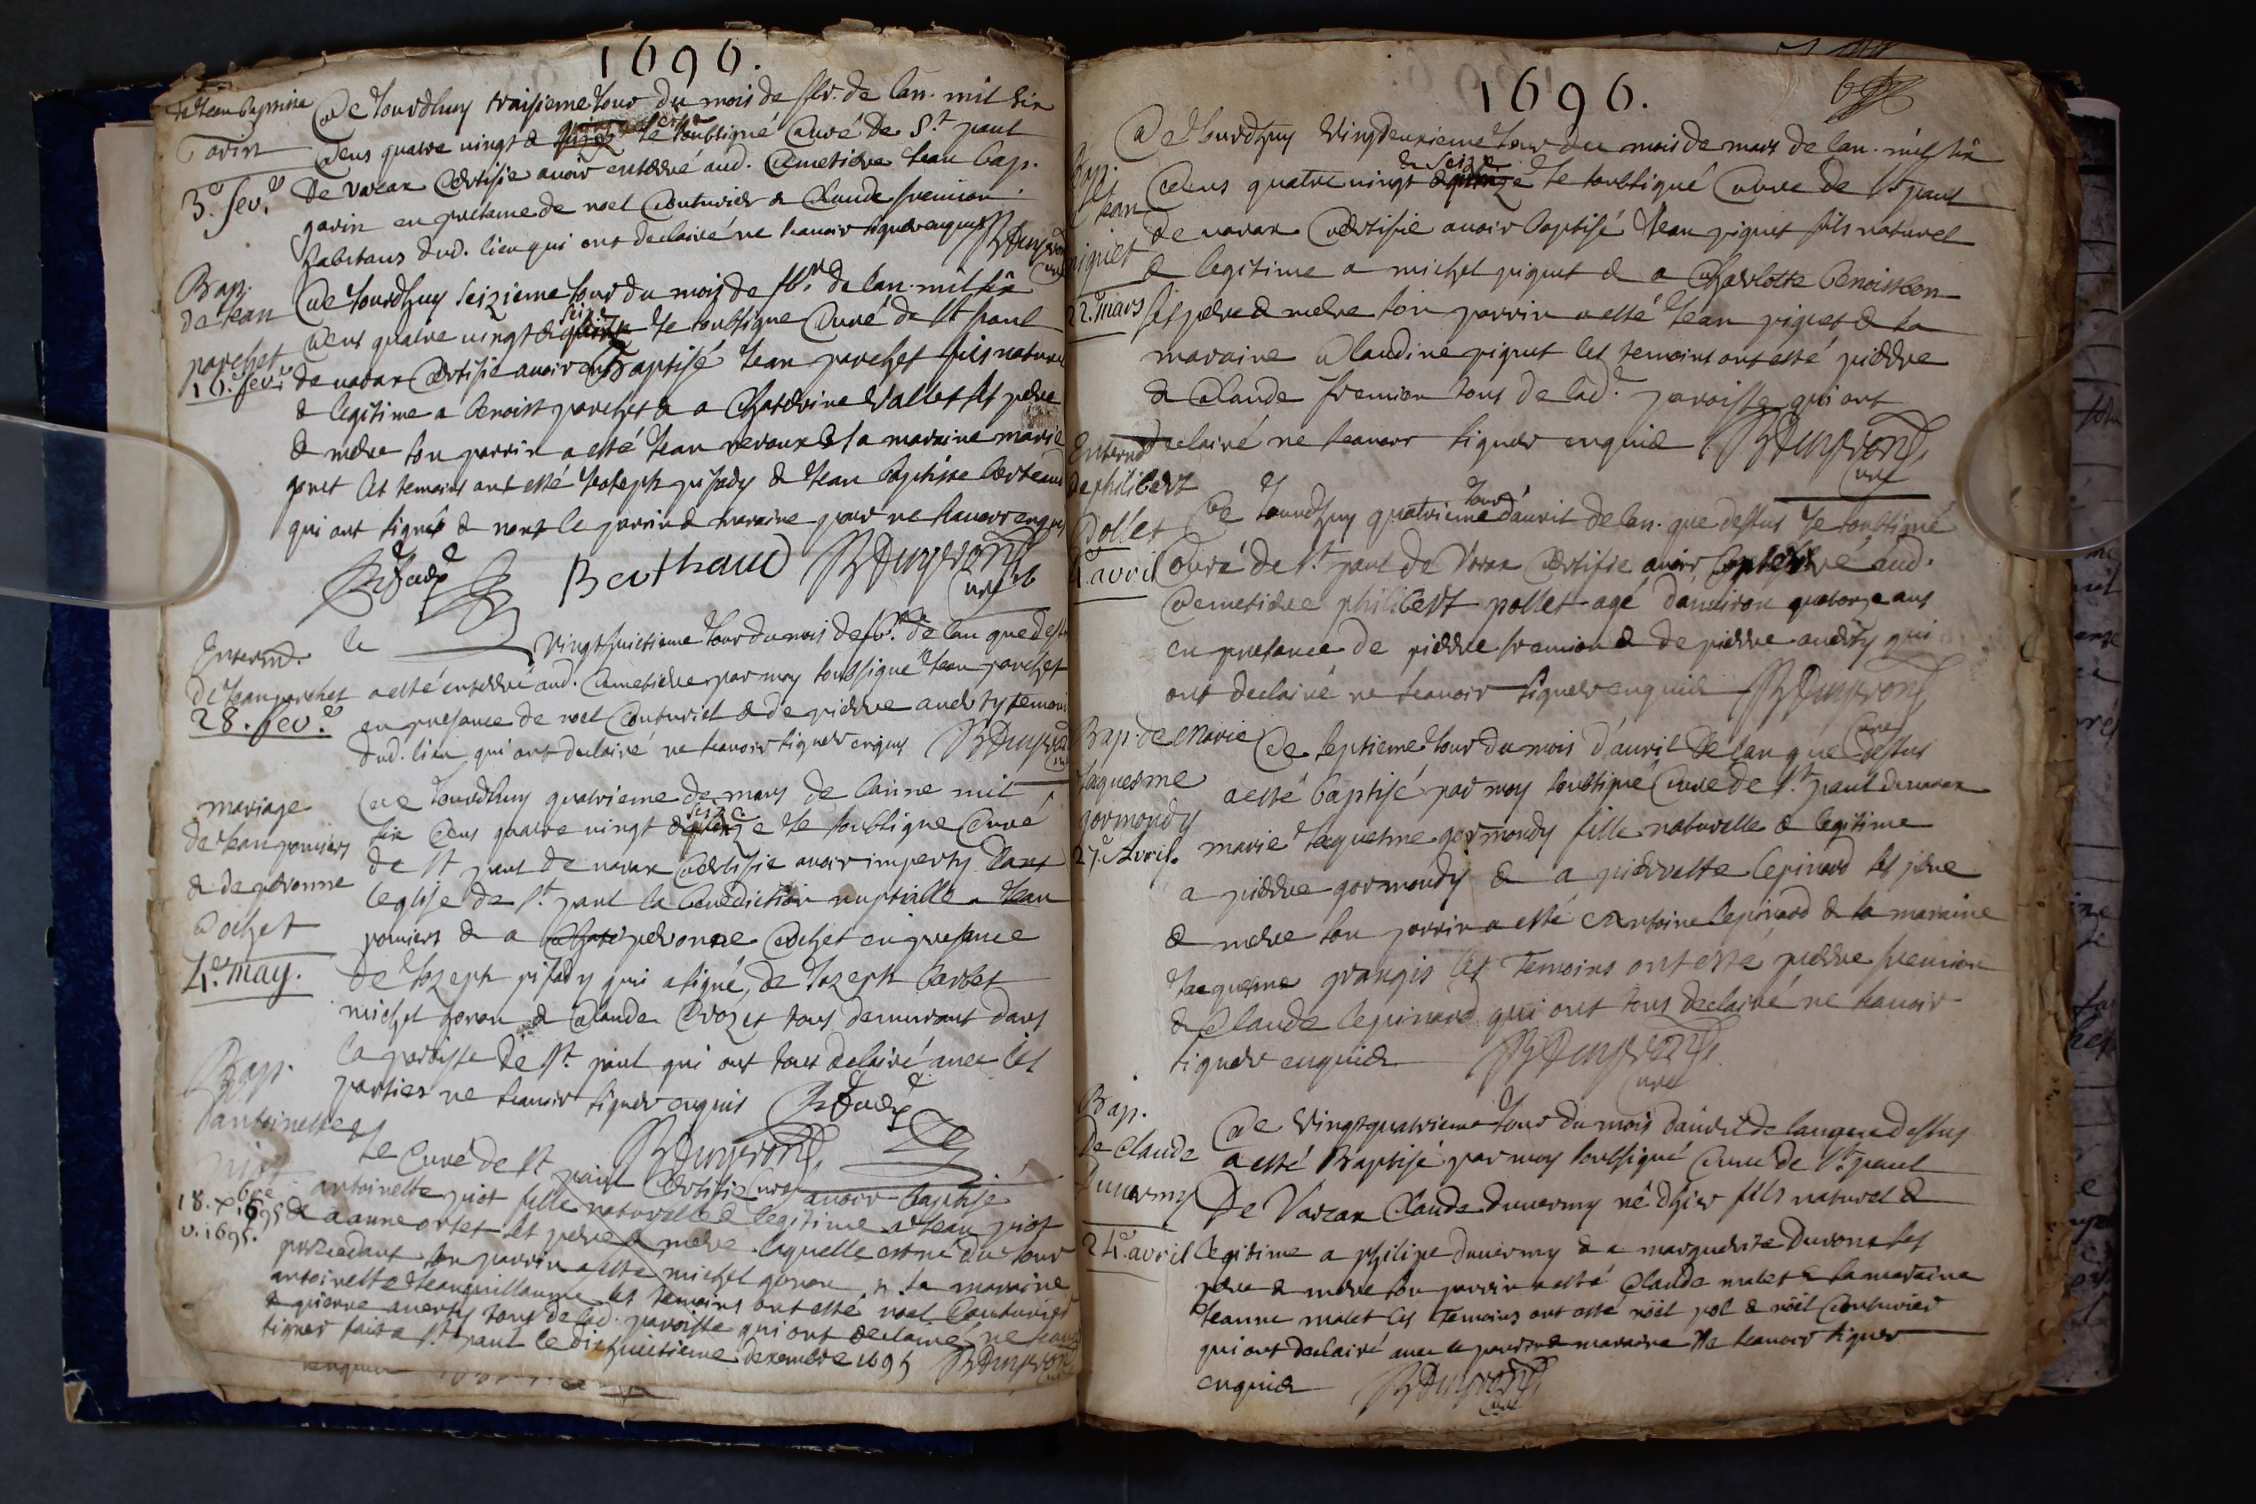 1696.
de Jean Baptiste
Gorin
3.e fev.r
Ce Jourdhuy troisieme Jour du mois de fev. de lan. mil six
cens quatre vingt & seize Je soubsigné Curé de St. paul
de varax Certifie avoir enterré aud. Cemetiere Jean bap.
gorin en presence de noel Couturier & Claude fremion
habitans dud. lieu qui ont declairé ne scavoir signer enquis
Curé
Bap.
de Jean
porchet
16. fev.r
Ce Jourdhuy seizieme Jour du mois de fev.r de lan. mil six
cens quatre vingt & seize Je soubsigne Curé de St paul
de varax Certifie avoir Baptisé Jean porchet fils naturel
& legitime a benoist porchet & a Chaterine Vallet ses pere
& mere son parrin a esté Jean revoux & sa maraine marie
goret les temoins ont esté Joseph pisady & Jean Baptiste berteaud
qui ont signés & nont le parrin & maraine pour ne scavoir enquis
Berthaud
Curé
Enterm.
de Jean porchet
28. fev.r
le vingt huictieme Jour du mois de fev.r de lan que dessus
a esté enterré aud. Cemetiere par moy soubsigné Jean porchet
en presance de noel Couturier & de pierre auerty temoins
dud. lieu qui ont declairé ne scavoir signer enquis
mariage
de Jean pomiers
& de peronne
Cochet
4.e may.
Ce Jourdhuy quatrieme de mars de lanne mil
six cens quatre vingt & seize Je soubsigne Curé
de St paul de varax Certifie avoir imperty dans
leglise de St. paul la benediction nuptialle a Jean
pomiers & a peronne Cochet en presance
de Jozeph pisady qui a signé, de Jozeph barbet
michel goron & Claude Crozet tous demeurant dans
la paroisse de St. paul qui ont tous declairé avec les
parties ne scavoir signer enquis
Bap.
dantoinette
piot
18. xbre
v. 1695.
Je Curé de St paul Certifie avoir baptisé
antoinette piot fille naturelle & legitime a Jean piot
& a anne ortet ses pere & mere laquelle est né du Jour
precedant son parrin a esté michel goron & sa maraine
antoinette Jeanguillaume les temoins ont esté noel Couturier
& pierre auerty tous de lad. paroisse qui ont declairé ne scavoir
signer fait a St. paul le dixhuictieme decembre 1695
enquis
1696.
Bap.
de Jean
piquet
22.e mars
Ce Jourdhuy vingdeuxieme Jour du mois de mars de lan. mil six
Cens quatre vingt & seize Je soubsigné Curé de St paul
de varax Certifie avoir baptisé Jean piquet fils naturel
& legitime a michel piquet & a Charlotte benoistbon
ses pere & mere son parrin a esté Jean piquet & sa
maraine Claudine piquet les temoins ont esté pierre
& Claude fremion tous de lad. paroisse qui ont
declairé ne scavoir signer enquis
Curé
Enterm.
de philibert
Pollet
4.e avril
Ce Jourdhuy quatrieme Jour d'avril de lan. que dessus Je soubsigné
Curé de St. paul de Varax Certifie avoir enterré aud.
Cemetiere philibert pollet agé denviron quatorze ans
en presance de pierre fremion & de pierre auerty qui
ont declairé ne scavoir signer enquis
Curé
Bap. de Marie
Jaquesme
gormondy
27.e Avril.
Ce septieme Jour du mois d'avril de lan que dessus
a esté baptisé par moy soubsigné Curé de St. paul de varax
marie Jaquesme gormondy fille naturelle & legitime
a pierre gormondy & a pierrette lepinard ses pere
& mere son parrin a esté Antoine lepinard & sa maraine
Jaquesme grangis les Temoins ont esté pierre fremion
& Claude lepinard qui ont tous declairé ne scavoir
signer enquis
Curé
Bap.
de Claude
Duvermy
24.e avril
Ce vingt quatrieme Jour du mois d'avril de lan que dessus
a esté Baptisé par moy soubsigné Curé de St. paul
de Varax Claude duvermy né dhier fils naturel &
legitime a philipe duvermy & a marguerite Durone ses
pere & mere son parrin a esté Claude malet & sa maraine
Jeanne malet les Temoins ont esté noël pol & noël Couturier
qui ont declairé avec le parrin & maraine Ne scavoir signer
enquis
Curé